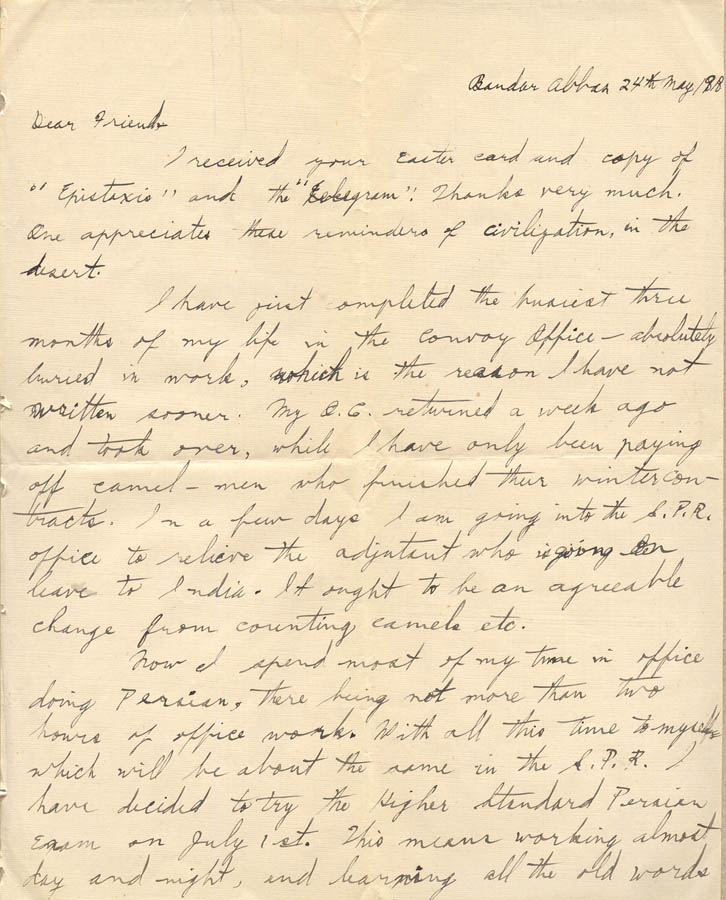 Bandar Abbas 24th May 1918
Dear Friend
I received your Easter card and copy of
"Epistaxis" and the "Telegram". Thanks very much.
One appreciates these reminders of civilization, in the
desert.
I have just completed the busiest three
months of my life in the Convoy Office — absolutely
buried in work, which is the reason I have not
written sooner. My O.C. returned a week ago
and took over, while I have only been paying
off camel-men who finished their winter con-
tracts. In a few days I am going into the S.P.R.
office to relieve the adjutant who is going on
leave to India. It ought to be an agreeable
change from counting camels etc.
Now I spend most of my time in office
doing Persian, there being not more than two
hours of office work. With all this time to myself
which will be about the same in the S.P.R. I
have decided to try the Higher Standard Persian
Exam on July 1st. This means working almost
day and night, and learning all the old words